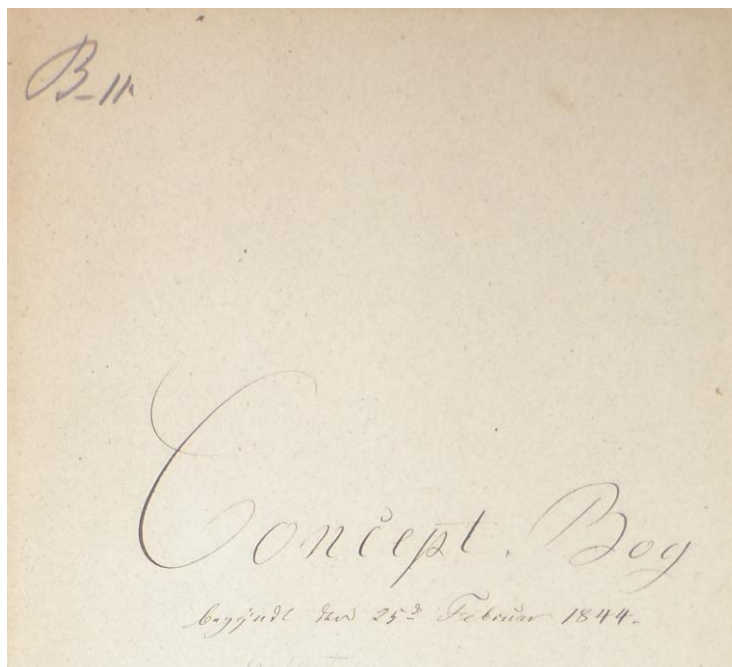 B-11.
Concept. Bog
begyndt den 25de Februar 1844.